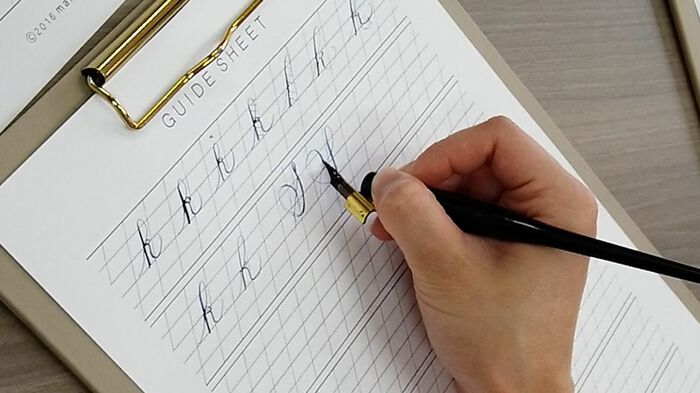 ©2016
GUIDE SHEET
k k k k l k k
k k S